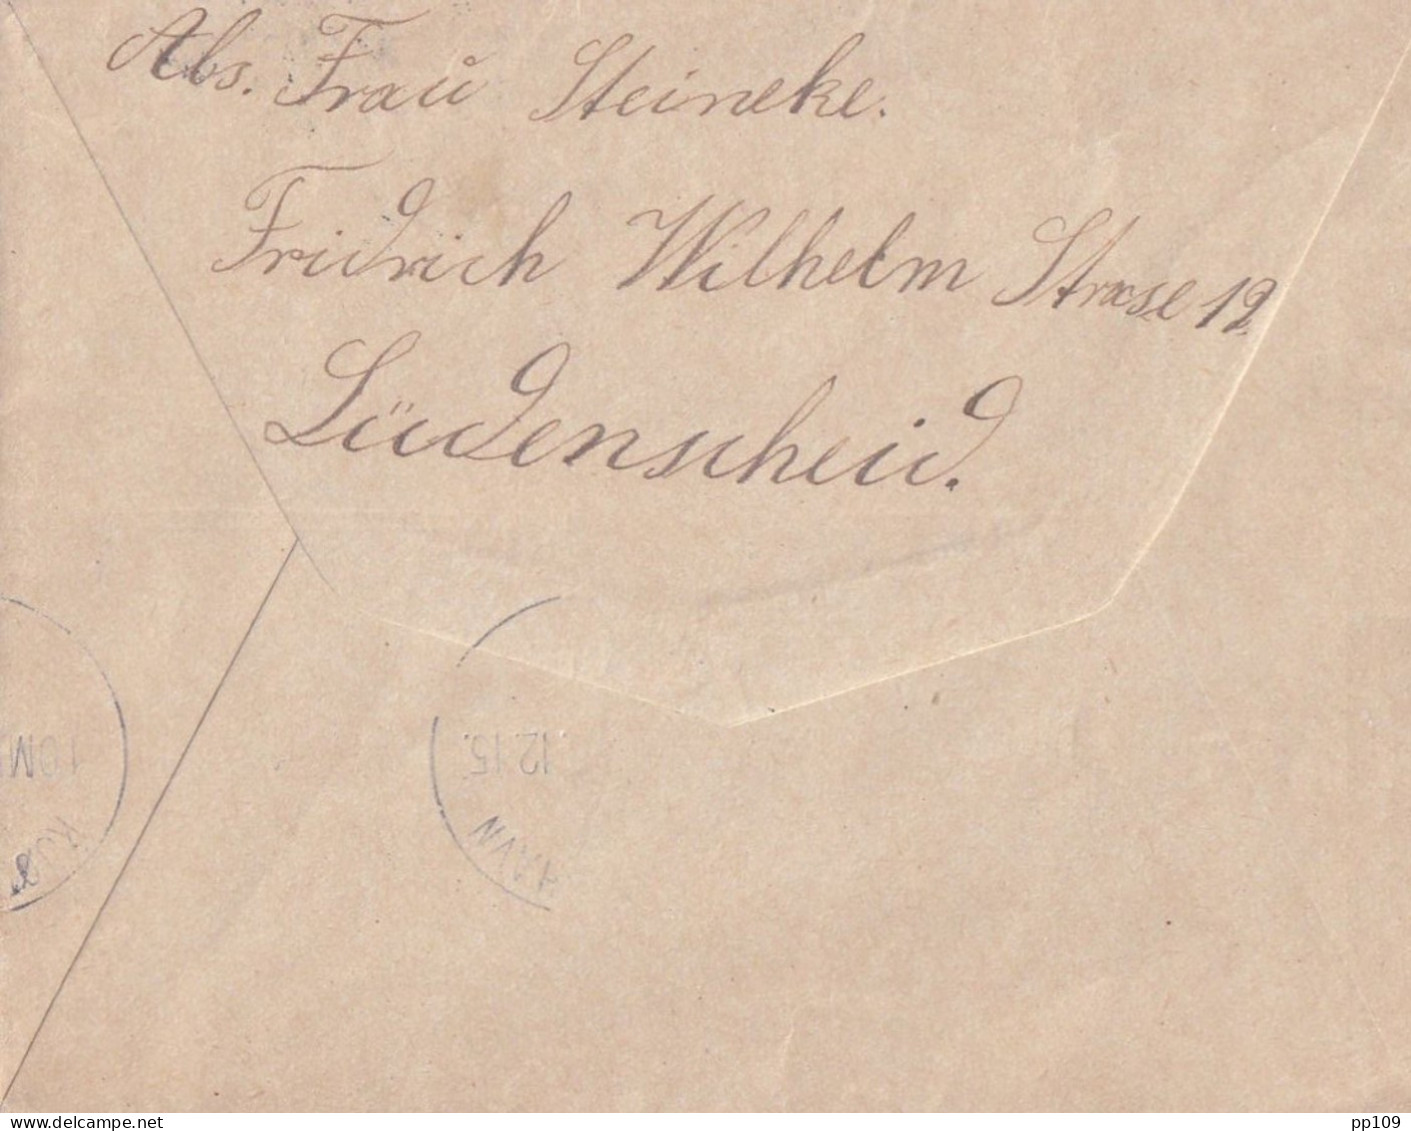 Abs. Frau Steineke.
Fridrich Wilhelm Strase 12.
Lüdenscheid.
12.15.
HAVN
delcampe.net
pp109